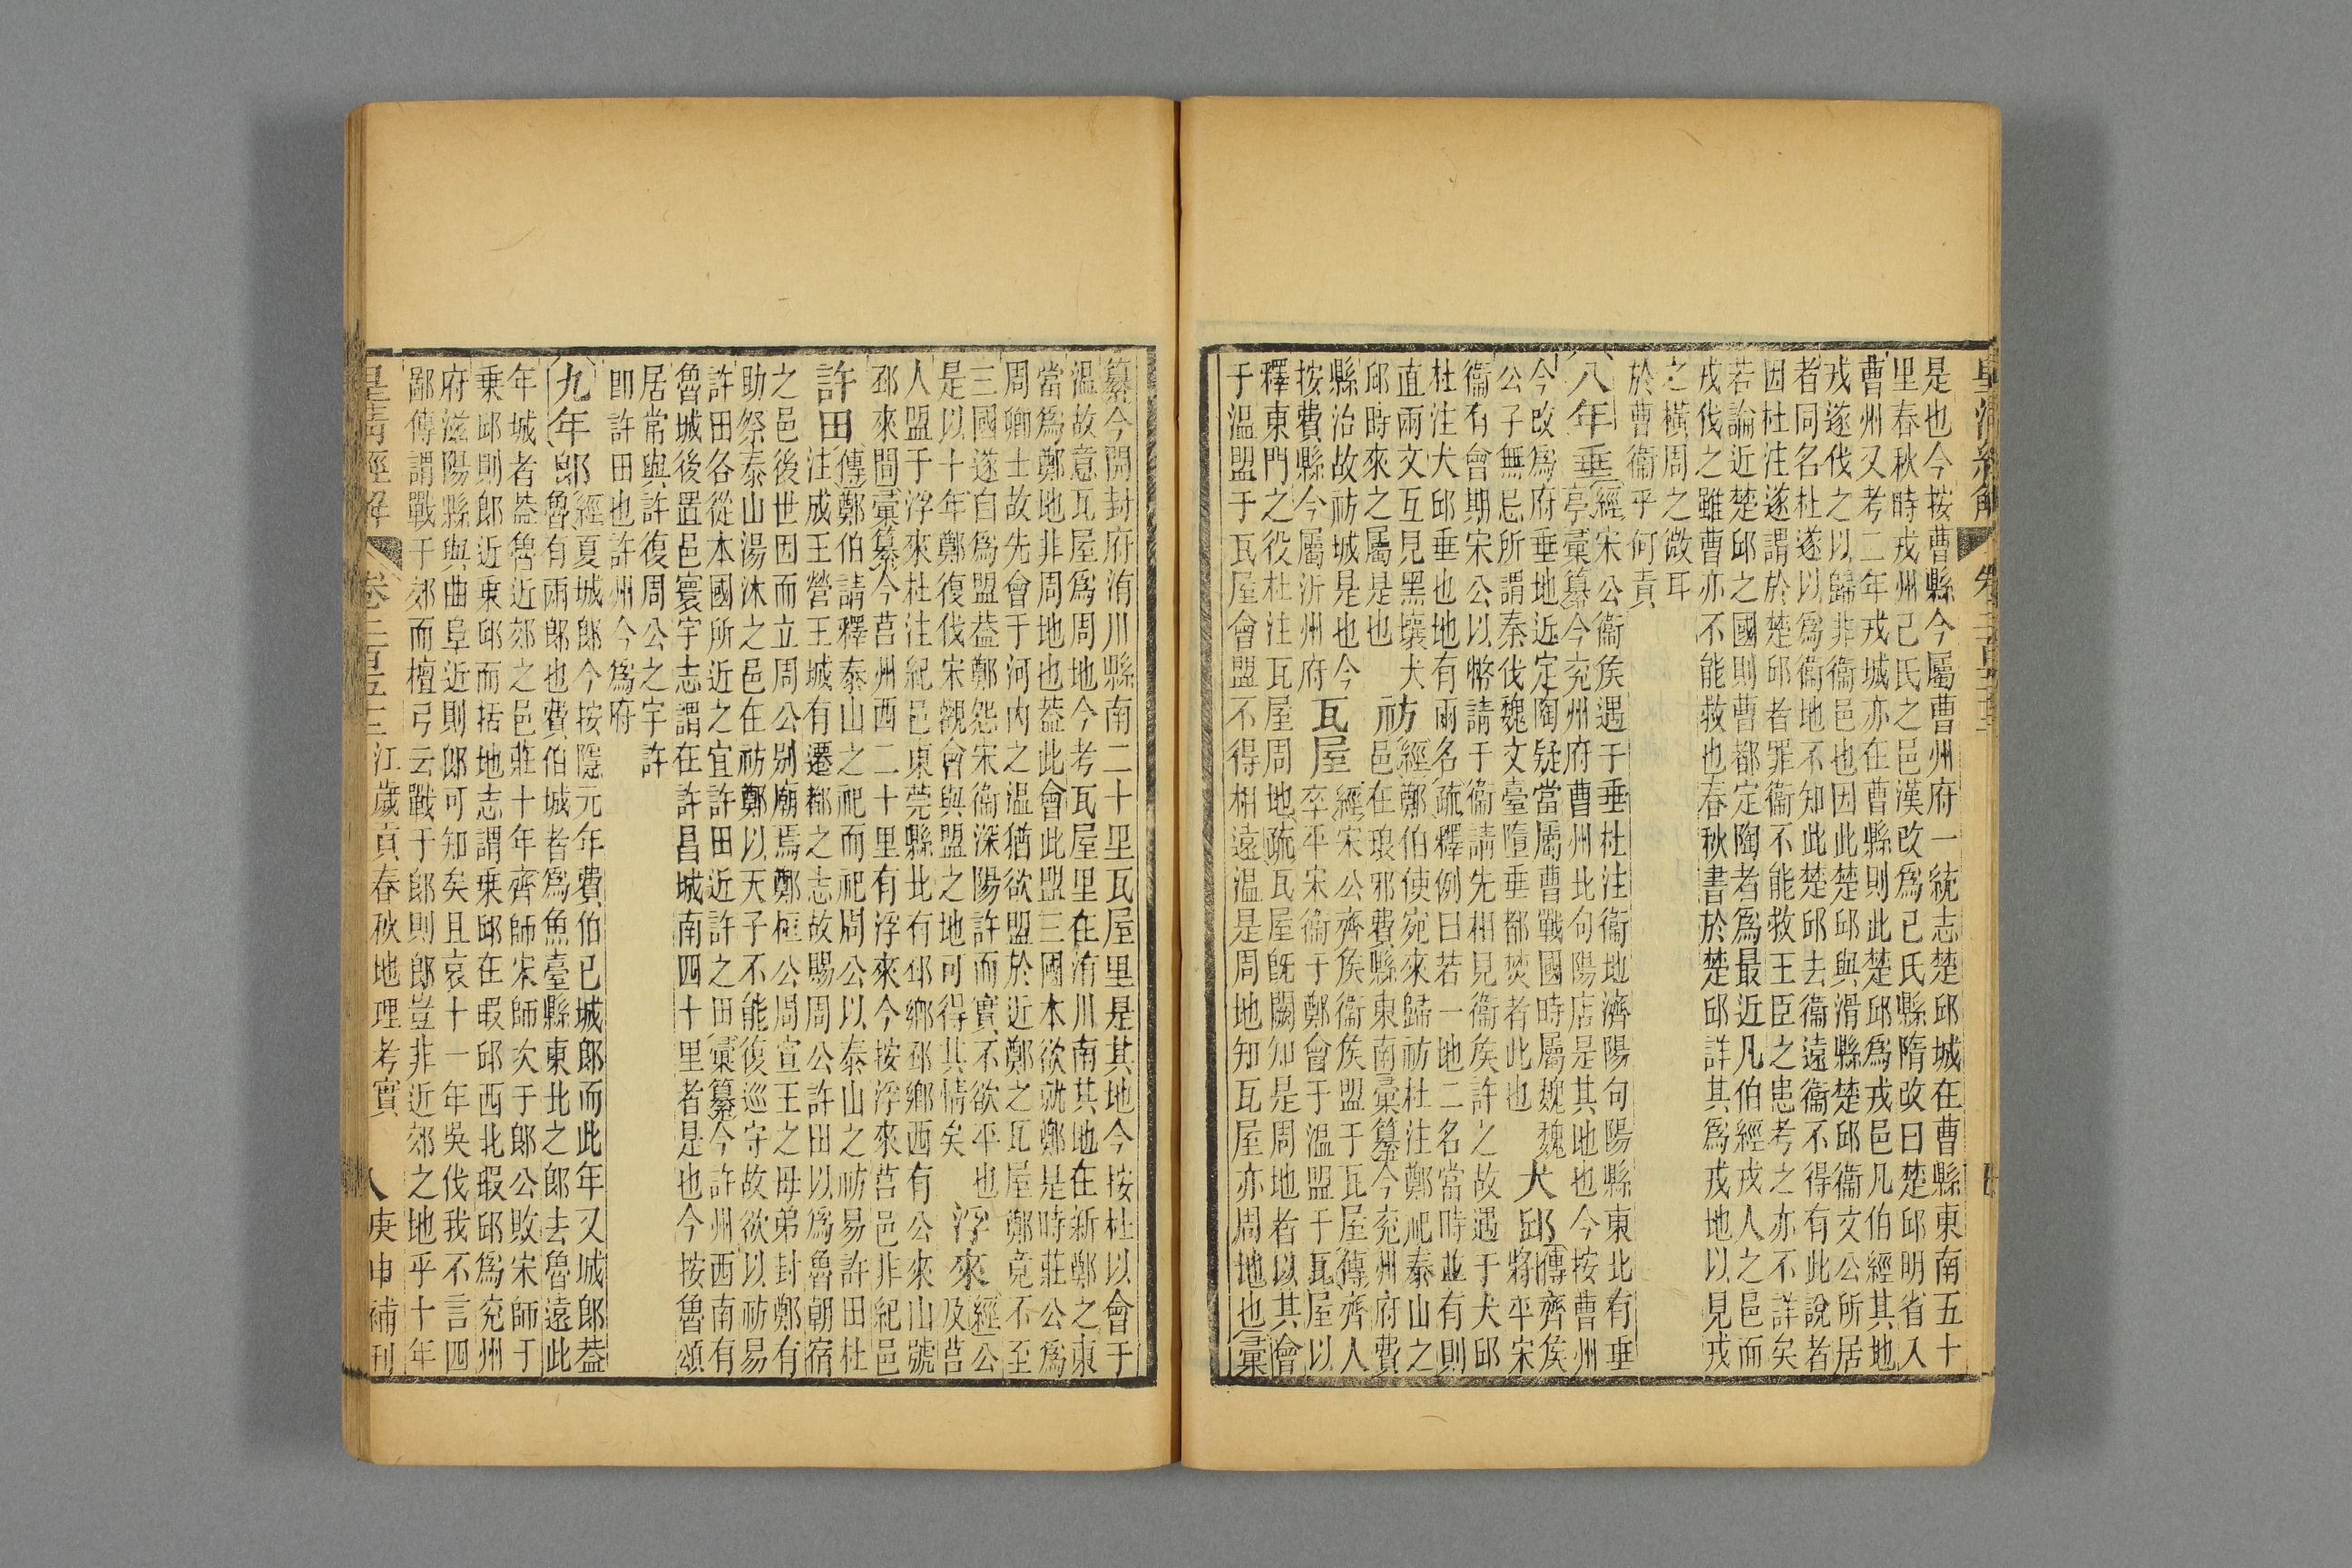 皇清經解 卷二百五十三
是也今按曹縣今屬曹州府一統志楚邱城在曹縣東南五十
里春秋時戎州已氏之邑漢改爲已氏縣隋改曰楚邱明省入
曹州又考二年戎城亦在曹縣則此楚邱爲戎邑凡伯經其地
戎遂伐之以歸非衞邑也因此楚邱與滑縣楚邱衞文公所居
者同名杜遂以爲衞地不知此楚邱去衞遠衞不得有此說者
因杜注遂謂於楚邱者罪衞不能救王臣之患考之亦不詳矣
若論近楚邱之國則曹都定陶者爲最近凡伯經戎人之邑而
戎伐之雖曹亦不能救也春秋書於楚邱詳其爲戎地以見戎
之橫周之微耳
於曹衞乎何責
八年垂 經宋公衞侯遇于垂杜注衞地濟陽句陽縣東北有垂
亭彙纂今兗州府曹州北句陽店是其地也今按曹州
今改爲府垂地近定陶疑當屬曹戰國時屬魏魏
公子無忌所謂秦伐魏文臺墮垂都焚者此也
犬邱 傳齊侯
將平宋
衞有會期宋公以幣請于衞請先相見衞侯許之故遇于犬邱
杜注犬邱垂也地有兩名疏釋例曰若一地二名當時並有則
直兩文互見黑壤犬
邱時來之屬是也
祊 經鄭伯使宛來歸祊杜注鄭祀泰山之
邑在琅邪費縣東南彙纂今兗州府費
縣治故祊城是也今
按費縣今屬沂州府
瓦屋 經宋公齊侯衞侯盟于瓦屋傳齊人
卒平宋衞于鄭會于溫盟于瓦屋以
釋東門之役杜注瓦屋周地疏瓦屋既闕知是周地者以其會
于溫盟于瓦屋會盟不得相遠溫是周地知瓦屋亦周地也彙
纂今開封府洧川縣南二十里瓦屋里是其地今按杜以會于
溫故意瓦屋爲周地今考瓦屋里在洧川南其地在新鄭之東
當爲鄭地非周地也葢此會此盟三國本欲就鄭是時莊公爲
周卿士故先會于河內之溫猶欲盟於近鄭之瓦屋鄭竟不至
三國遂自爲盟葢鄭怨宋衞深陽許而實不欲平也
是以十年鄭復伐宋觀會與盟之地可得其情矣
浮來 經公
及莒
人盟于浮來杜注紀邑東莞縣北有邳鄉邳鄉西有公來山號
邳來間彙纂今莒州西二十里有浮來今按浮來莒邑非紀邑
許田 傳鄭伯請釋泰山之祀而祀周公以泰山之祊易許田杜
注成王營王城有遷都之志故賜周公許田以爲魯朝宿
之邑後世因而立周公別廟焉鄭桓公周宣王之母弟封鄭有
助祭泰山湯沐之邑在祊鄭以天子不能復巡守故欲以祊易
許田各從本國所近之宜許田近許之田彙纂今許州西南有
魯城後置邑寰宇志謂在許昌城南四十里者是也今按魯頌
居常與許復周公之宇許
卽許田也許州今爲府
九年郎 經夏城郎今按隱元年費伯已城郎而此年又城郎葢
魯有兩郎也費伯城者爲魚臺縣東北之郎去魯遠此
年城者葢魯近郊之邑莊十年齊師宋師次于郎公敗宋師于
乘邱則郎近乘邱而括地志謂乘邱在瑕邱西北瑕邱爲兗州
府滋陽縣與曲阜近則郎可知矣且哀十一年吳伐我不言四
鄙傳謂戰于郊而檀弓云戰于郎則郎豈非近郊之地乎十年
皇清經解 卷二百五十三 江歲貢春秋地理考實 八 庚申補刊